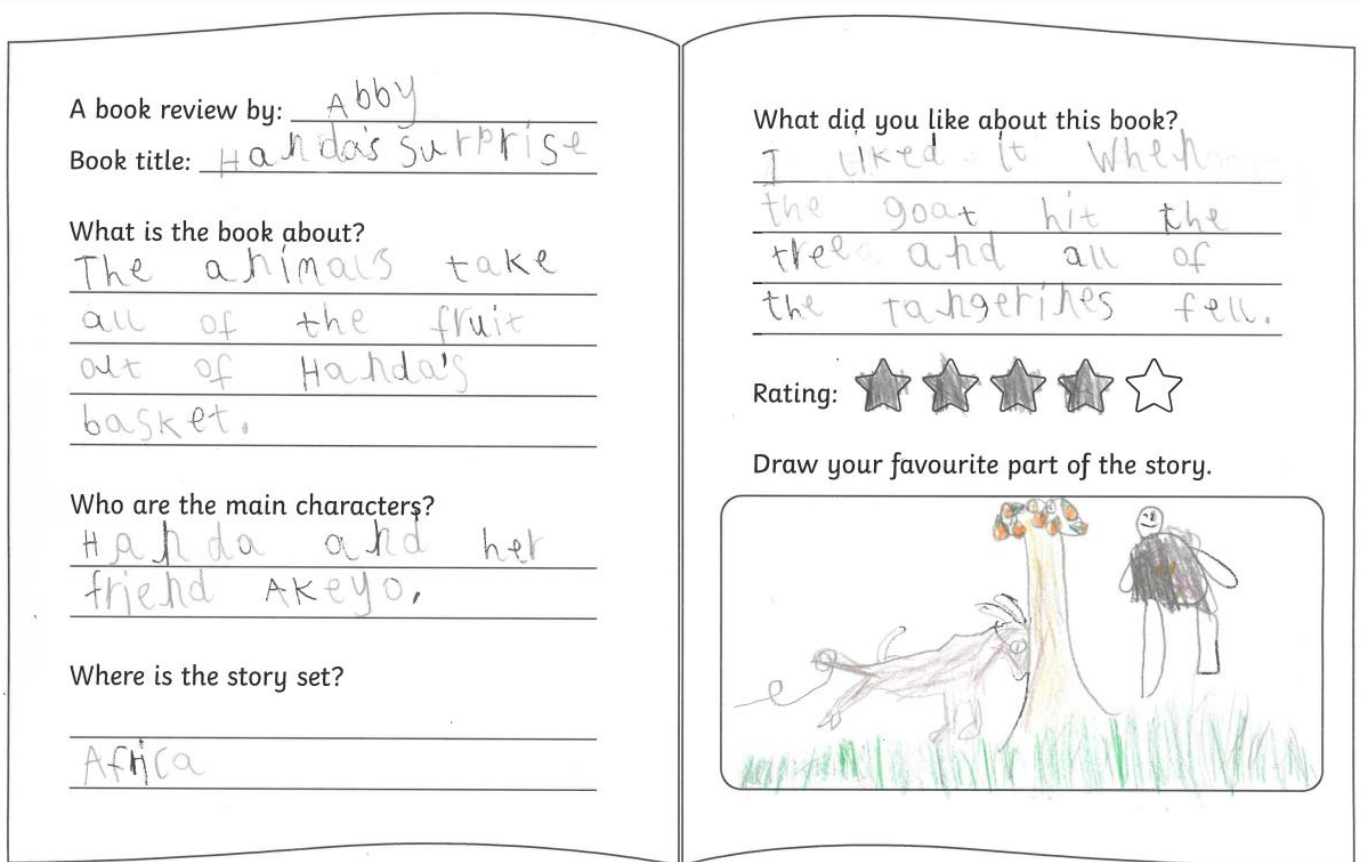 A book review by: Abby
Book title: Handa's Surprise
What is the book about?
The animals take
all of the fruit
out of Handa's
basket.
Who are the main characters?
Handa and her
friend Akeyo.
Where is the story set?
Africa
What did you like about this book?
I liked it when
the goat hit the
tree and all of
the tangerines fell.
Rating:
Draw your favourite part of the story.